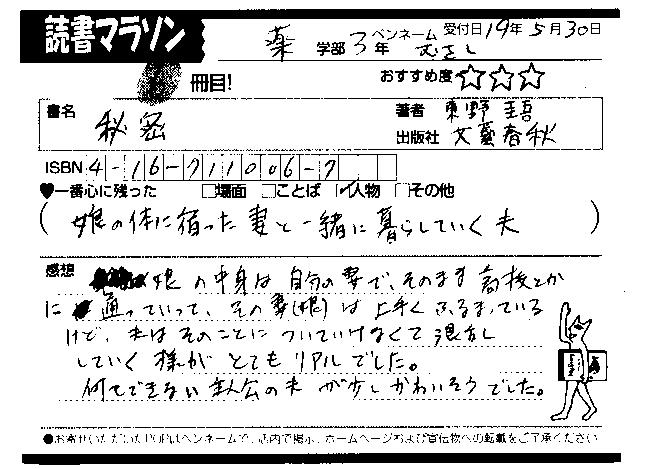 読書マラソン
薬 学部 3年 ペンネーム むさし 受付日 19年5月30日
冊目! おすすめ度☆☆☆
書名 秘密
著者 東野圭吾
出版社 文藝春秋
ISBN 4-16-711006-7
♥一番心に残った □場面 □ことば ☑人物 □その他
(娘の体に宿った妻と一緒に暮らしていく夫)
感想 娘の中身は自分の妻で、そのまま高校とか
に通っていって、その妻(娘)は上手くふるまっている
けど、夫はそのことについていけなくて
していく様がとてもリアルでした。
何もできない主人公の夫が少しかわいそうでした。
●お寄せいただいたPOPはペンネームで、店内で掲示、ホームページおよび宣伝物への転載をご了承ください